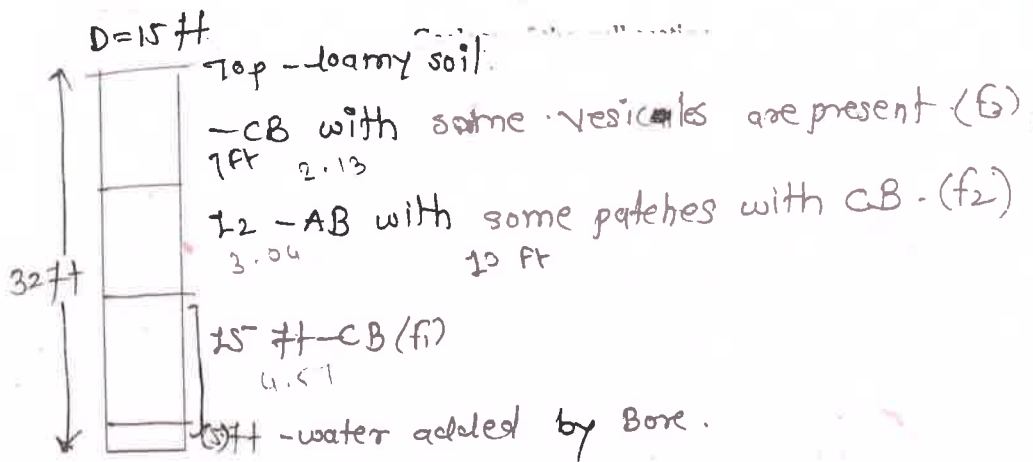 D=15 ft
Top - loamy soil.
-CB with some vesicales are present (f3)
7ft 2.13
L2 - AB with some patehes with CB. (f2)
3.04 10 ft
32 ft
15 ft-CB (f1)
4.57
(5)ft -water added by Bore.